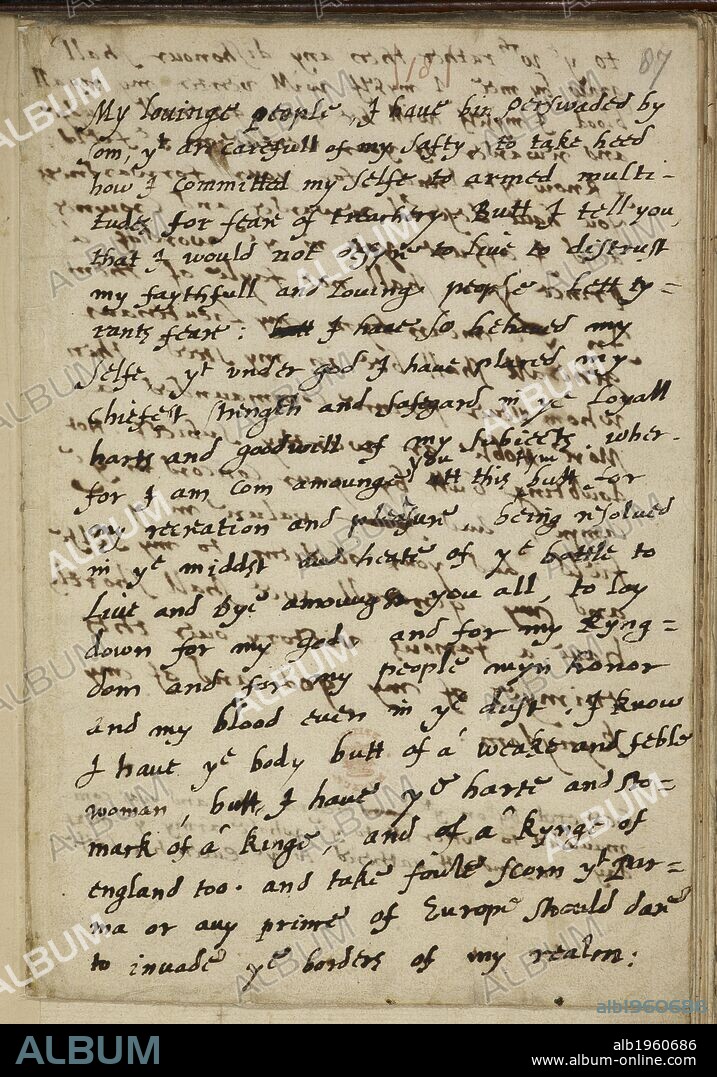 87
My louinge people, I haue bin perswaded by
som, yt are carefull of my safty to take heed
how I committed my selfe to armed multi-
tudes for fear of treachery. Butt I tell you,
that I would not desyre to liue to distrust
my faythfull and louinge people. Lett ty=
rants fear: I haue so behaued my
selfe, yt vnder god I haue placed my
chiefest strength and safgard in ye loyall
harts and goodwill of my subiects. wher-
for I am com amounge you att this time butt for
my recreation and pleasure being resolued
in ye middst and heate of ye battle to
liue and dye amoungst you all, to lay
down for my god, and for my kyng=
dom and for my people myn honor
and my blood euen in ye dust. I know
I haue ye body butt of a weake and feble
woman, butt I haue ye harte and sto=
mack of a kinge, and of a kynge of
england too. and take foule scorn yt Par=
ma or any prince of Europe should dare
to inuade ye borders of my realm:
ALBUM
alb1960686
www.album-online.com